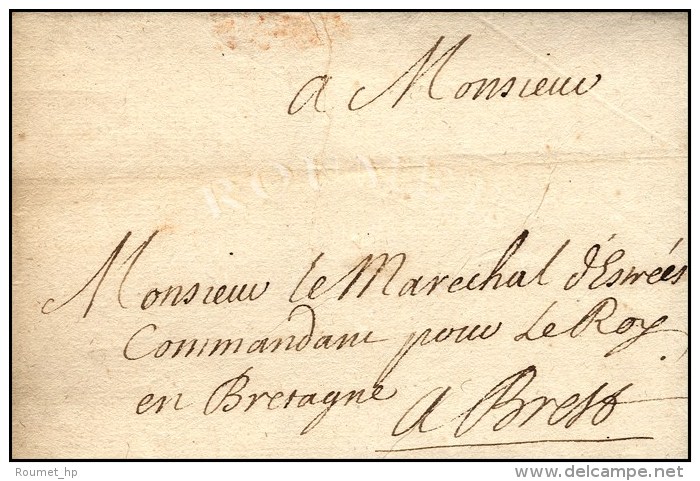 a Monsieur
Monsieur le Marechal d'Estrées
Commandant pour le Roy
en Bretagne
a Brest
Roumet_hp
delcampe.net